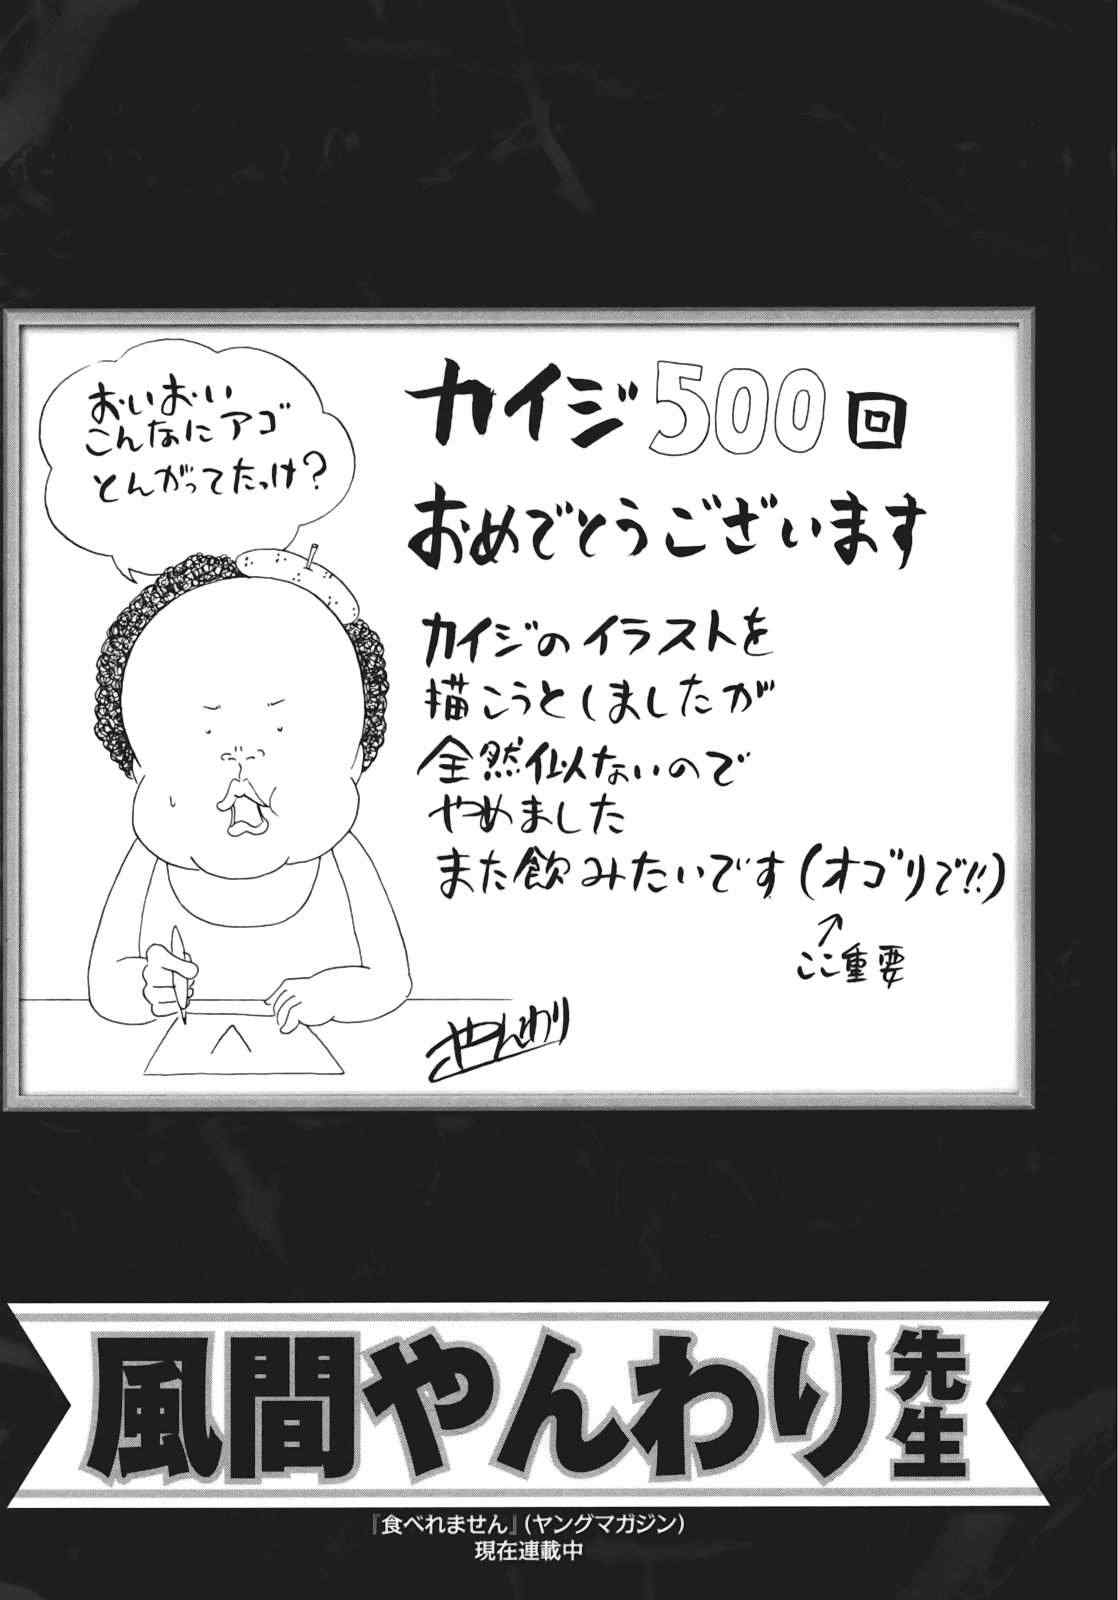 おいおい
こんなにアゴ
とんがってたっけ?
カイジ500回
おめでとうございます
カイジのイラストを
描こうとしましたが
全然似ないので
やめました
また飲みたいです(オゴリで!!)
↑
ここ重要
やんわり
風間やんわり先生
『食べれません』(ヤングマガジン)
現在連載中